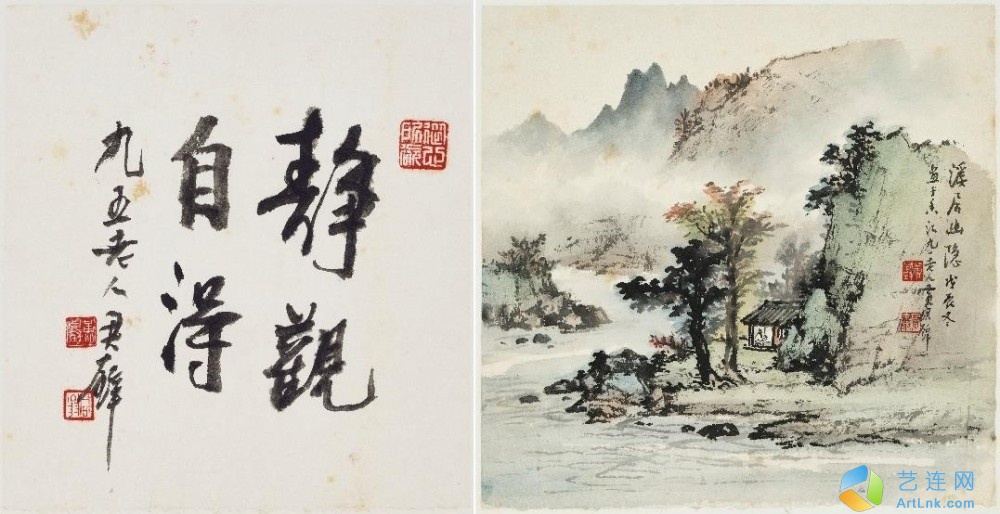 靜觀
自得
九五老人君璧
溪居幽隱 戊辰冬
畫于香江九一老人黃君璧
艺连网
ArtLnk.com